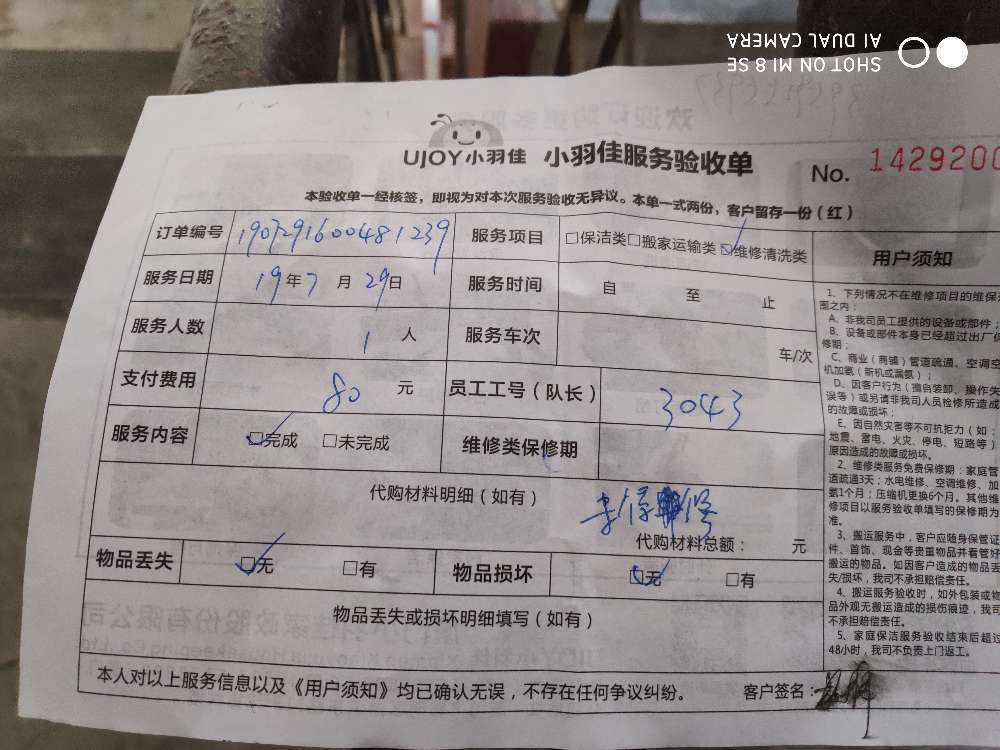 SHOT ON MI 8 SE
AI DUAL CAMERA
UJOY小羽佳 小羽佳服务验收单
No. 1429200
本验收单一经核签，即视为对本次服务验收无异议。本单一式两份，客户留存一份（红）
订单编号 190729160048 1239 服务项目 □保洁类□搬家运输类☑维修清洗类
服务日期 19年7月29日 服务时间 自 至 止
服务人数 1人 服务车次 车/次
支付费用 80元 员工工号（队长） 3043
服务内容 ☑完成 □未完成 维修类保修期
代购材料明细（如有）
代购材料总额： 元
物品丢失 ☑无 □有 物品损坏 ☑无 □有
物品丢失或损坏明细填写（如有）
本人对以上服务信息以及《用户须知》均已确认无误，不存在任何争议纠纷。 客户签名：
用户须知
1、下列情况不在维修项目的维保范
围之内：
A、非我司员工提供的设备或部件；
B、设备或部件本身已经超过出厂保
修期；
C、商业（商铺）管道疏通、空调空
机加氨（新机或漏氨）；
D、因客户行为（擅自装卸、操作失
误等）或另请非我司人员检修所造成
的故障或损坏；
E、因自然灾害等不可抗拒力（如：
地震、雷电、火灾、停电、短路等）
原因造成的故障或损坏。
2、维修类服务免费保修期：家庭管
道疏通3天；水电维修、空调维修、加
氨1个月；压缩机更换6个月。其他维
修项目以服务验收单填写的保修期为
准。
3、搬运服务中，客户应随身保管证
件、首饰、现金等贵重物品并看管好
搬运的物品。如因客户造成的物品丢
失/损坏，我司不承担赔偿责任。
4、搬运服务验收时，如外包装或物
品外观无搬运造成的损伤痕迹，我司
不承担赔偿责任。
5、家庭保洁服务验收结束后超过
48小时，我司不负责上门返工。